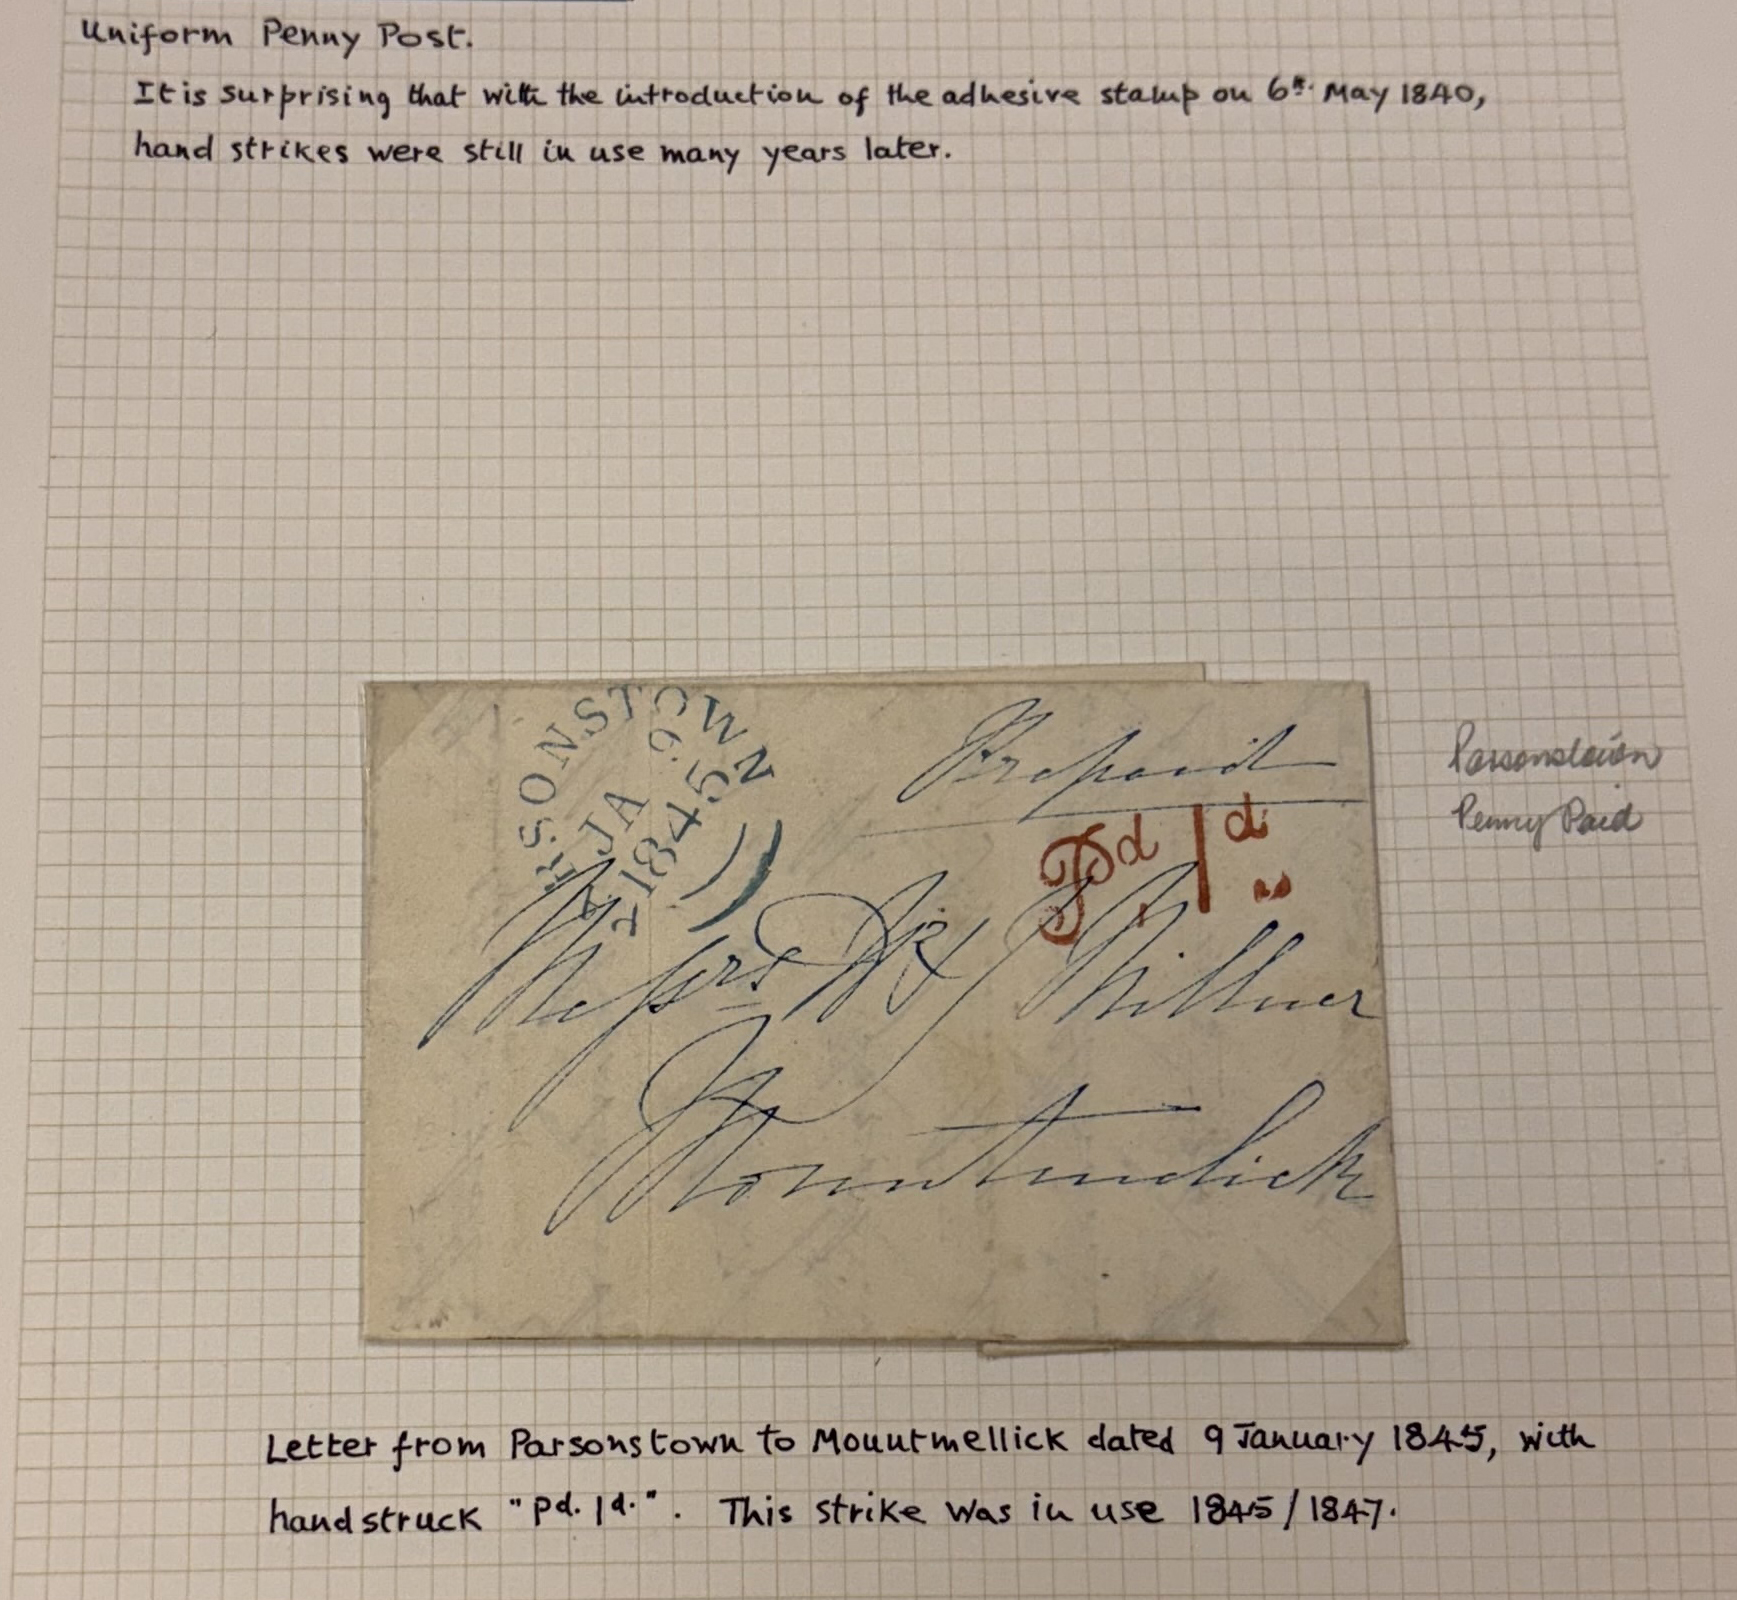 Uniform Penny Post.
It is surprising that with the introduction of the adhesive stamp on 6th. May 1840,
hand strikes were still in use many years later.
RSONSTOWN
JA 9
1845
Prepaid
Pd 1d
Messrs
Millner
Mountmelick
Parsonstown
Penny Paid
Letter from Parsonstown to Mountmellick dated 9 January 1845, with
handstruck "Pd. 1d.". This strike was in use 1845/1847.